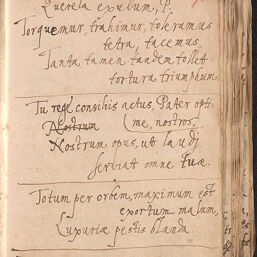 Querela exulum, P.
Torquemur, trahimur, toleramus
tetra, tacemus,
Tanta tamen tandem tollet
tortura triumphum.
Tu rege consiliis actus, Pater opti-
Nostrum (me, nostros,
Nostrum opus, ut laudi
serviat omne tuæ.
Totum per orbem, maximum est
exortum malum,
Luxuriæ pestis blanda.